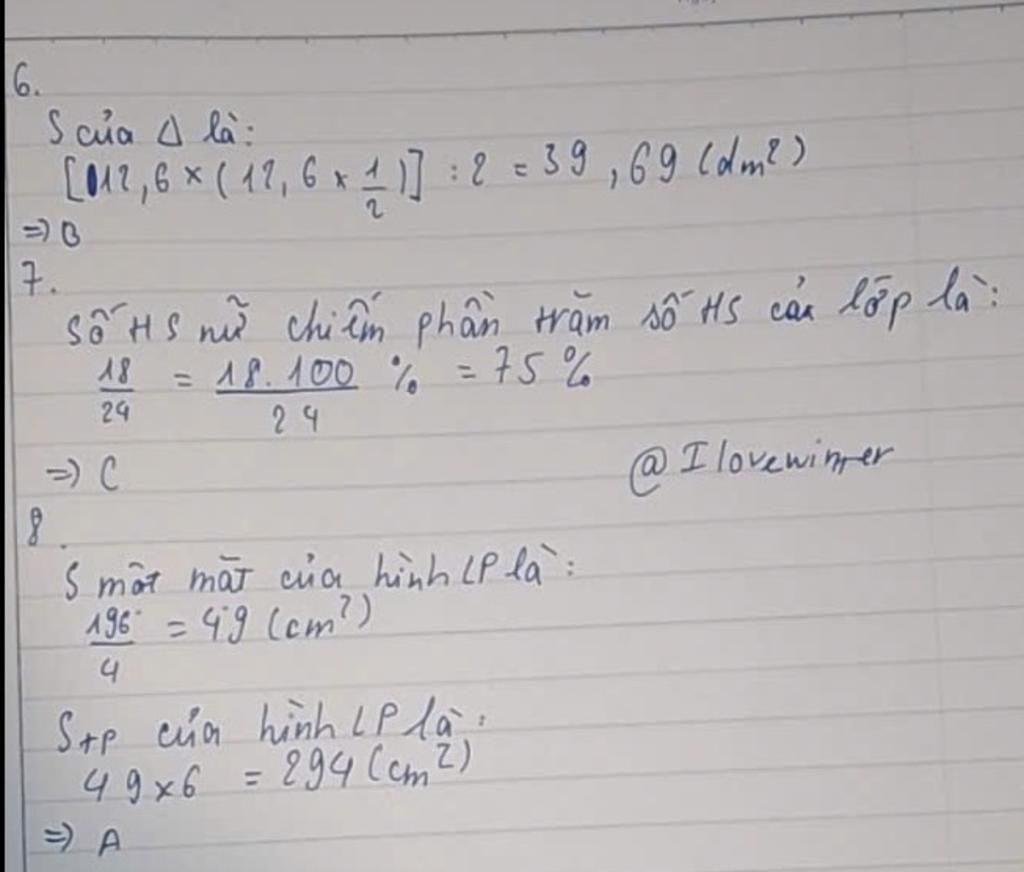 6.
S của Δ là:
[12,6 × (12,6 × 1/2)] : 2 = 39,69 (dm²)
=> B
7.
Số HS nữ chiếm phần trăm số HS cả lớp là:
18/24 = 18.100/24 % = 75 %
=> C
@Ilovewinter
8.
S một mặt của hình LP là:
196/4 = 49 (cm²)
Stp của hình LP là:
49 × 6 = 294 (cm²)
=> A